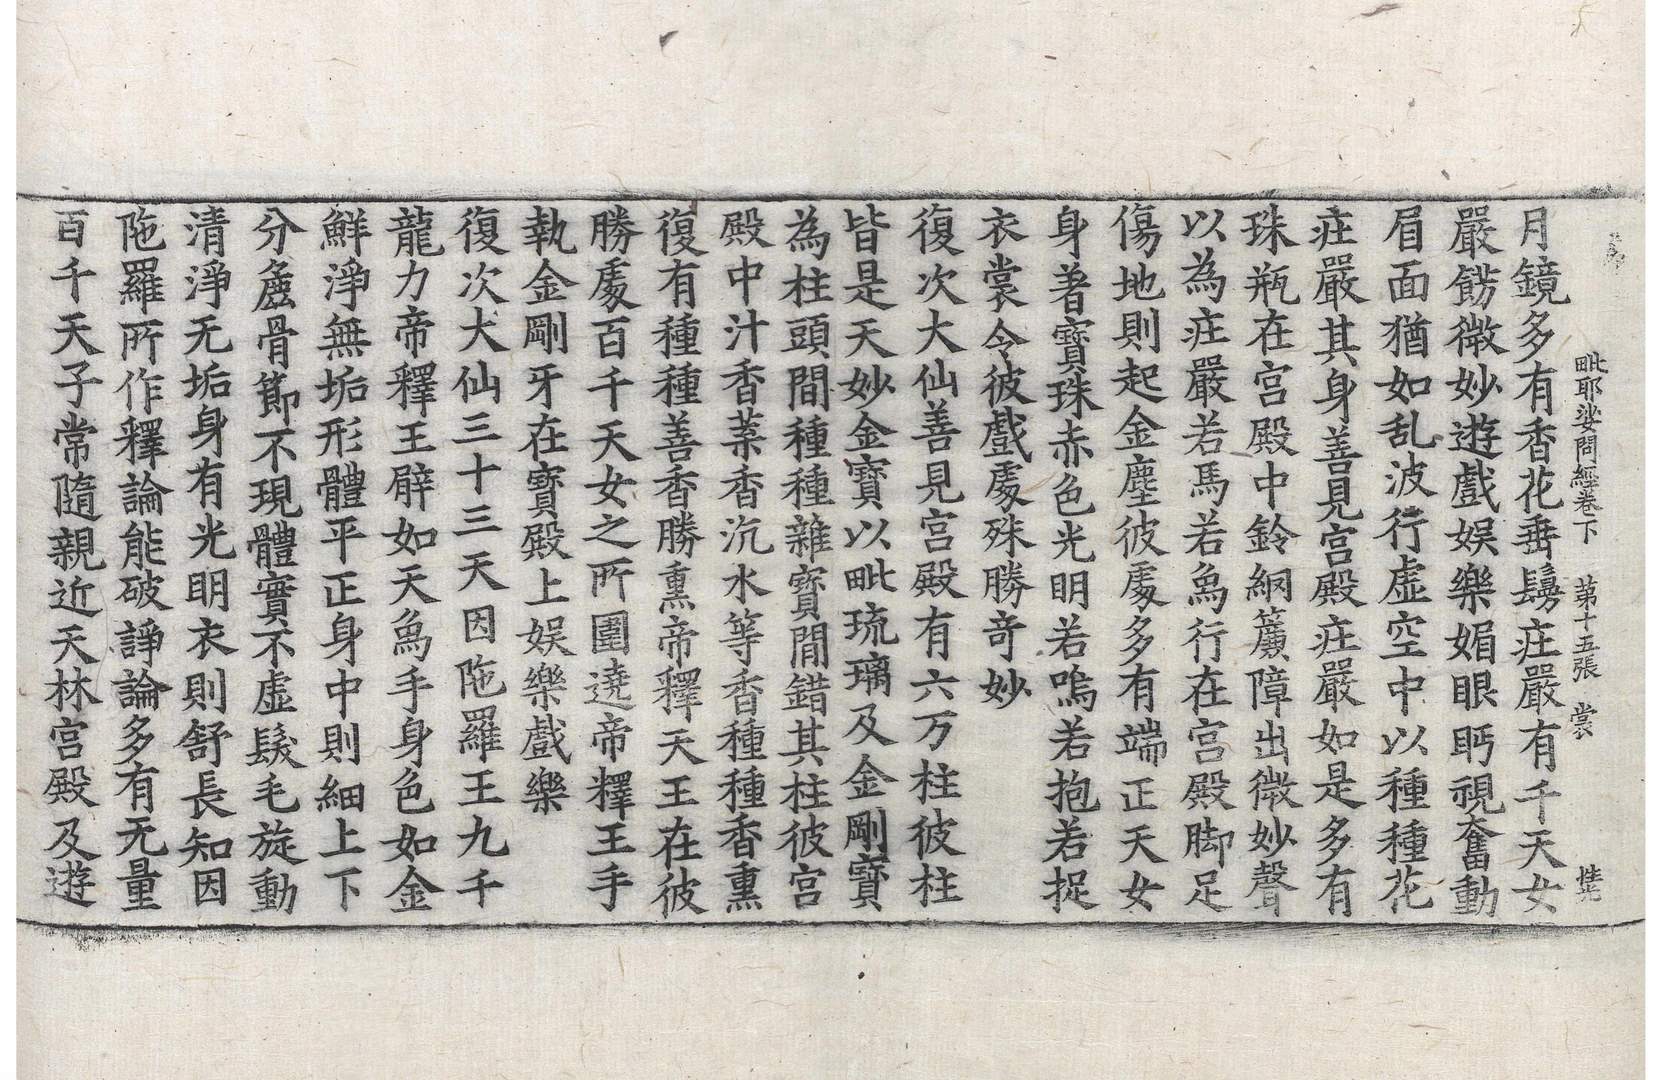 毗耶娑問經卷下　第十五張　裳
月鏡多有香花垂鬘庄嚴有千天女
嚴餝微妙遊戲娛樂媚眼眄視奮動
眉面猶如乱波行虛空中以種種花
庄嚴其身善見宮殿庄嚴如是多有
珠瓶在宮殿中鈴網簾障出微妙聲
以為庄嚴若馬若鳥行在宮殿脚足
傷地則起金塵彼處多有端正天女
身著寶珠赤色光明若嗚若抱若捉
衣裳令彼戲處殊勝奇妙
復次大仙善見宮殿有六万柱彼柱
皆是天妙金寶以毗琉璃及金剛寶
為柱頭間種種雜寶間錯其柱彼宮
殿中汁香葉香沉水等香種種香熏
復有種種善香勝熏帝釋天王在彼
勝處百千天女之所圍遶帝釋王手
執金剛牙在寶殿上娛樂戲樂
復次大仙三十三天因陁羅王九千
龍力帝釋王臂如天象手身色如金
鮮淨無垢形體平正身中則細上下
分麁骨節不現體實不虛髮毛旋動
清淨无垢身有光明衣則舒長知因
陁羅所作釋論能破諍論多有无量
百千天子常隨親近天林宮殿及遊